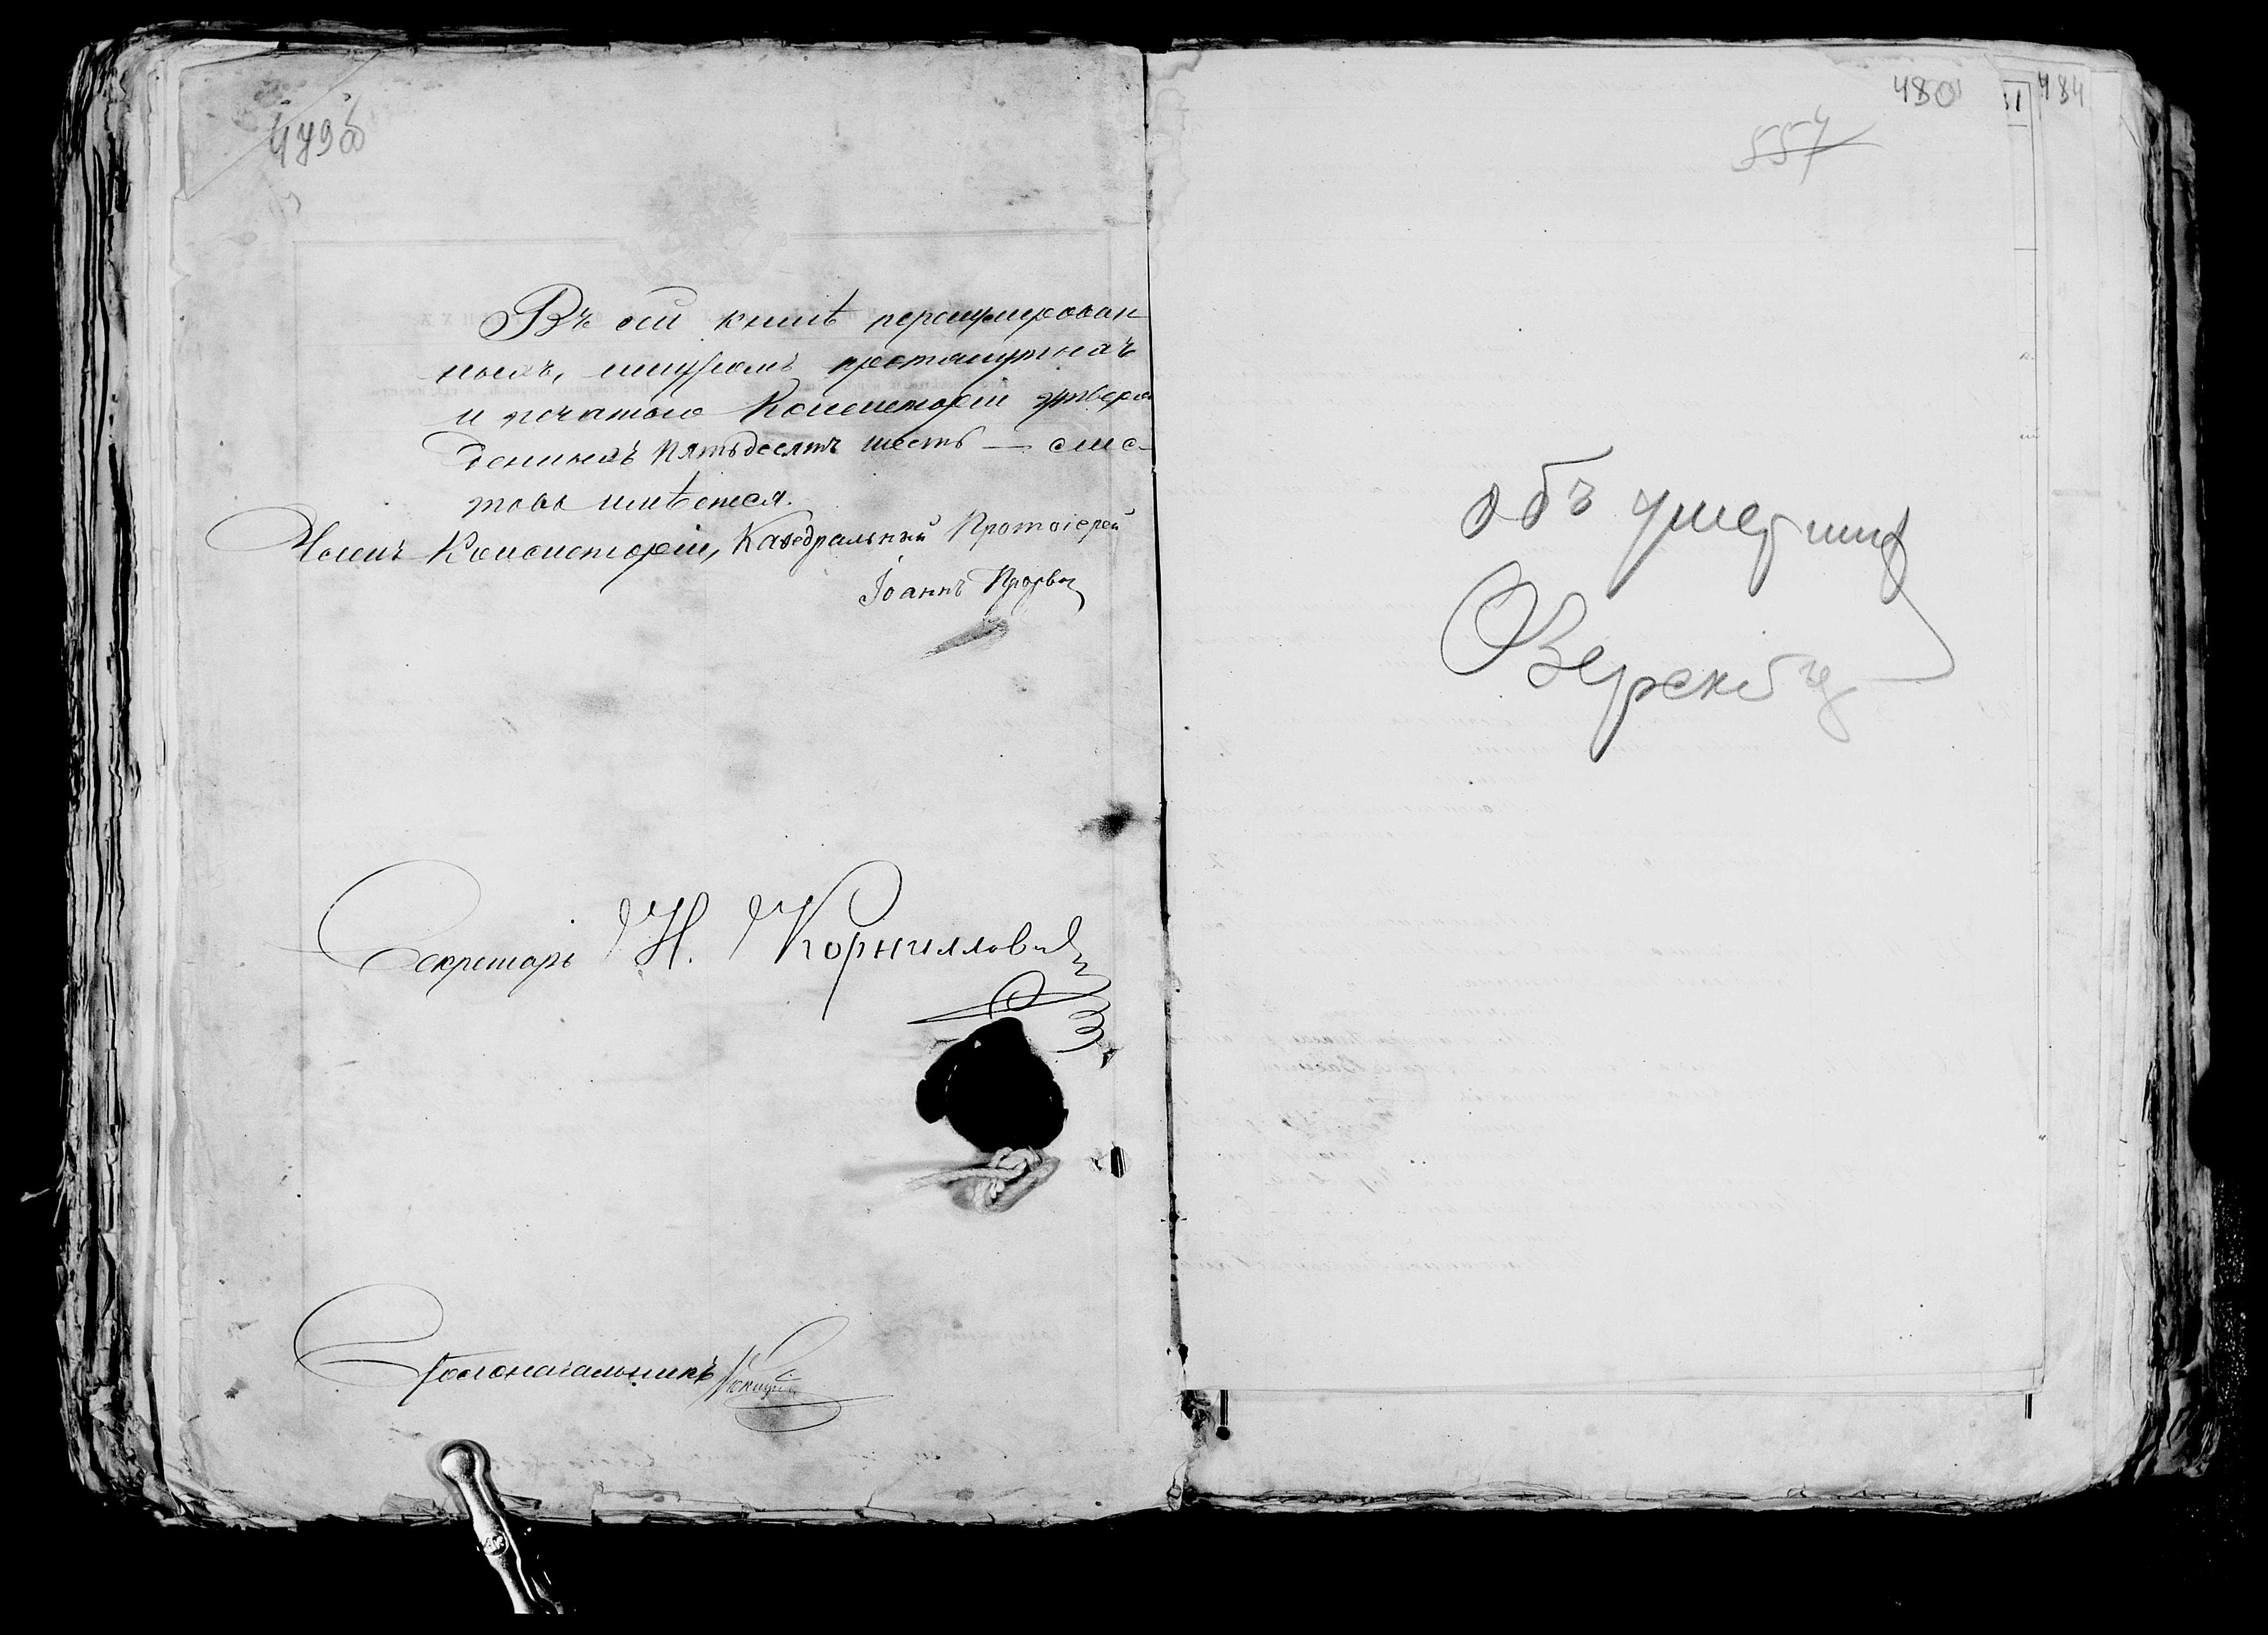 479об
Въ сей книгѣ перенумерован
ныхъ, шнуромъ простянутыхъ
и печатью Консисторіи утверж
денныхъ пятьдесятъ шесть — лис-
товъ имѣется.
Членъ Консисторіи, Каѳедральный Протоіерей
Іоаннъ
Секретарь Н. Корниллович
Столоначальникъ
480
484
557
объ умерших
Озерскіе